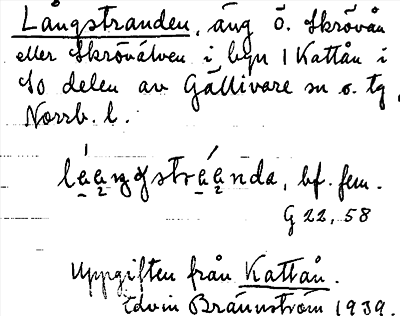 Långstranden, äng ö. Skrövån
eller Skrövälven i byn Kattån i
SO delen av Gällivare sn o. tg,
Norrb. l.
låaŋgstråanda, bf. fem.
G 22, 58
Uppgiften från Kattån.
Edvin Brännström 1939.